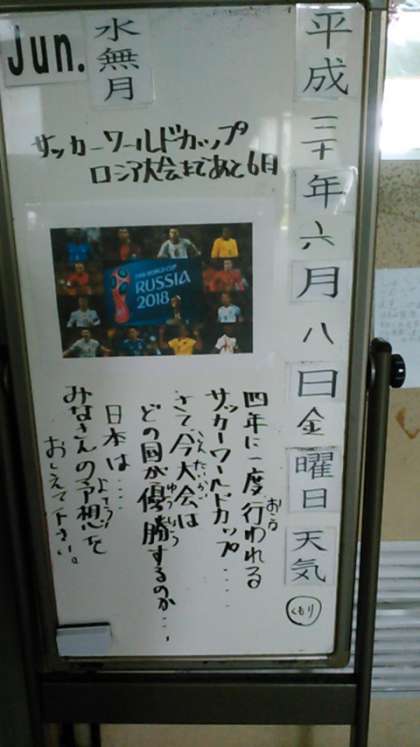 Jun.
水無月
平成三十年六月八日金曜日天気
くもり
サッカーワールドカップ
ロシア大会まであと6日
FIFA WORLD CUP
RUSSIA
2018
四年に一度行われる
おこな
サッカーワールドカップ……
さて今大会は
こんたいかい
どの国が優勝するのか…,
ゆうしょう
日本は……
みなさんの予想を
よそう
おしえて下さい。